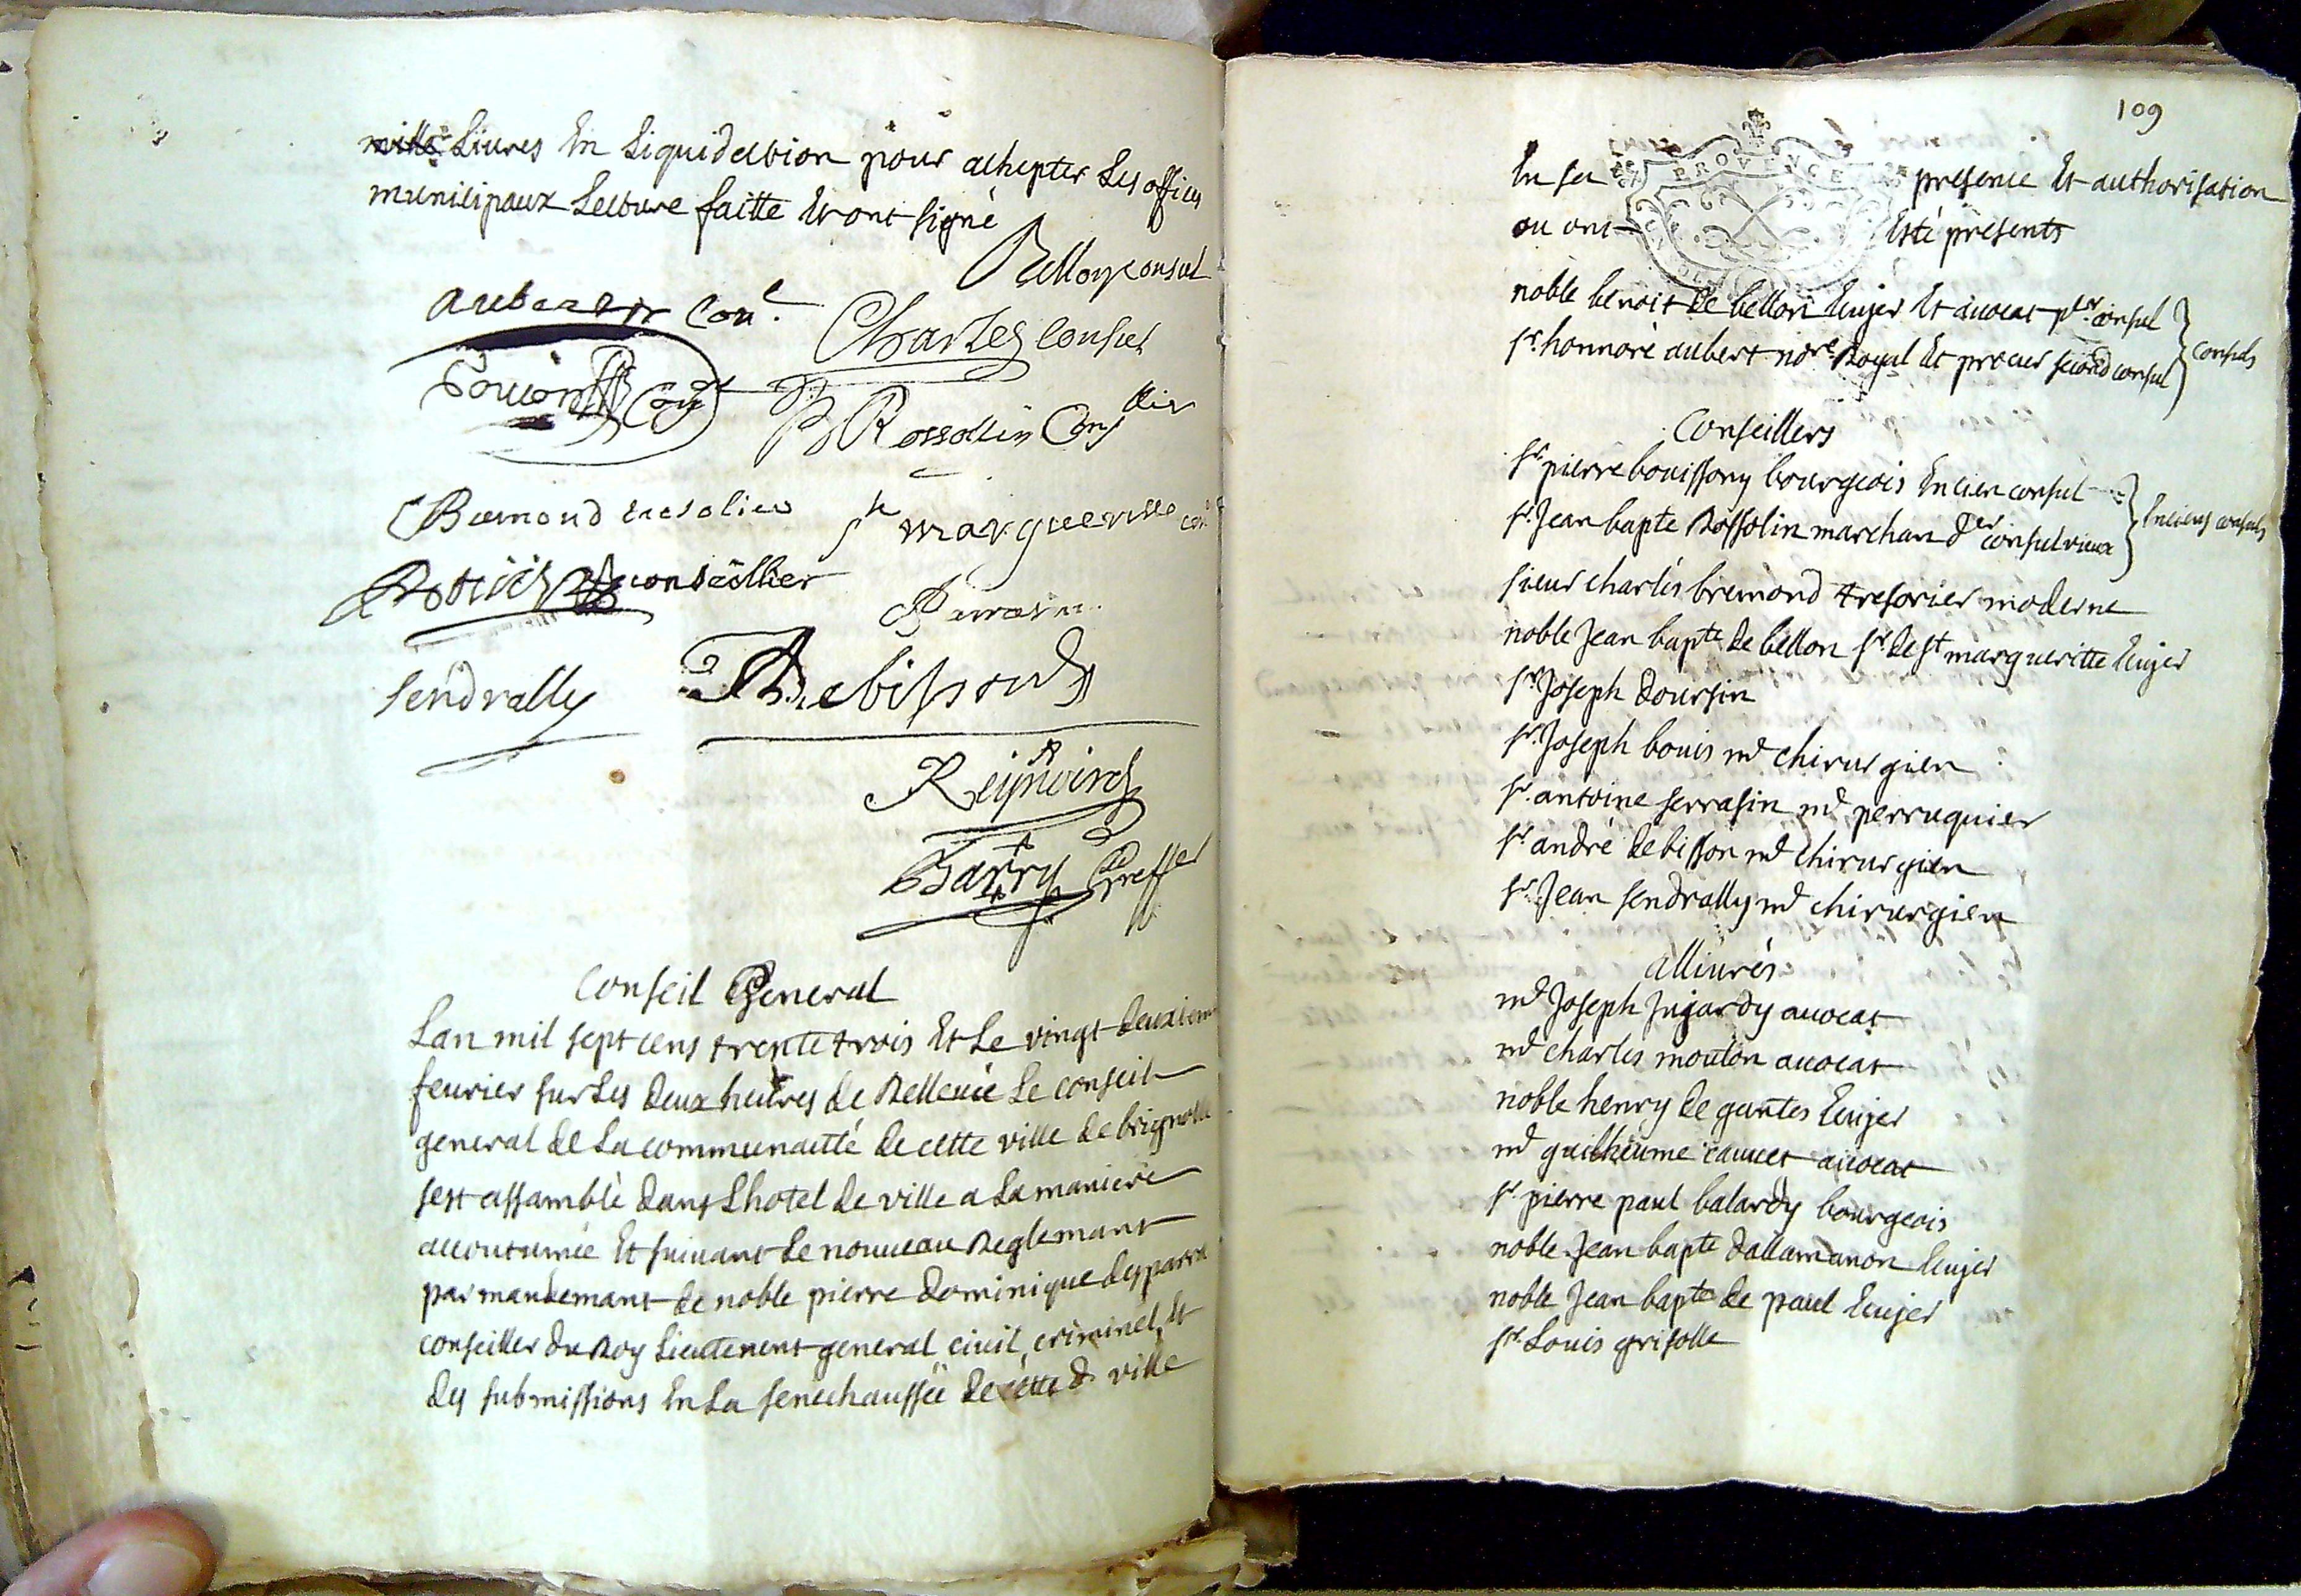 mille Liures En Liquidation pour achepter Les offices
municipaux Lecture faitte Et ont signé
Bellon consul
aubert con.l
Charles Consul
B Rossollin Conseillier
Bremond tresolier
st margueritte con
Bouis conseillier
Serrasin
Sendrally
Debisson
Reynoird
Barry Greffier
Conseil General
Lan mil sept cens trente trois Et Le vingt deuxieme
feurier sur Les deux heures de Relleuée Le conseil
general de La communauté de cette ville de brignolle
sest assamblé dans Lhotel de ville a La maniere
accoutumée Et suiuant Le nouueau Reglemant
par mandemant de noble pierre dominique desparra
conseiller du Roy Lieutenent general ciuil, criminel, Et
des submissions En La senechaussée de cette d ville
109
PROVENCE
En sa presence Et authorisation
ou ont Esté présents
noble benoit de bellon Euyer Et auocat p.er consul
sr. honnoré aubert nore. Royal Et procur second consul
Consuls
Conseillers
sr. pierre bouissony bourgeois Encien consul
sr. Jean bapte Rossolin marchan d.er consul vieux
Enciens consuls
sieur charlés bremond tresorier moderne
noble Jean bapte de bellon sr. de st margueritte Euyer
sr. Joseph doursin
sr. Joseph bouis md chirurgien
sr. antoine serrasin md perruquier
sr andré debisson md chirurgien
sr. Jean sendrally md chirurgien
alliurés
md Joseph Jujardy auocat
md charles mouton auocat
noble henry de gantes Euyer
md guilheume cauuet auocat
sr. pierre paul balardy bourgeois
noble Jean bapte dallamanon Euyer
noble Jean bapte de paul Euyer
sr. Louis grisolle